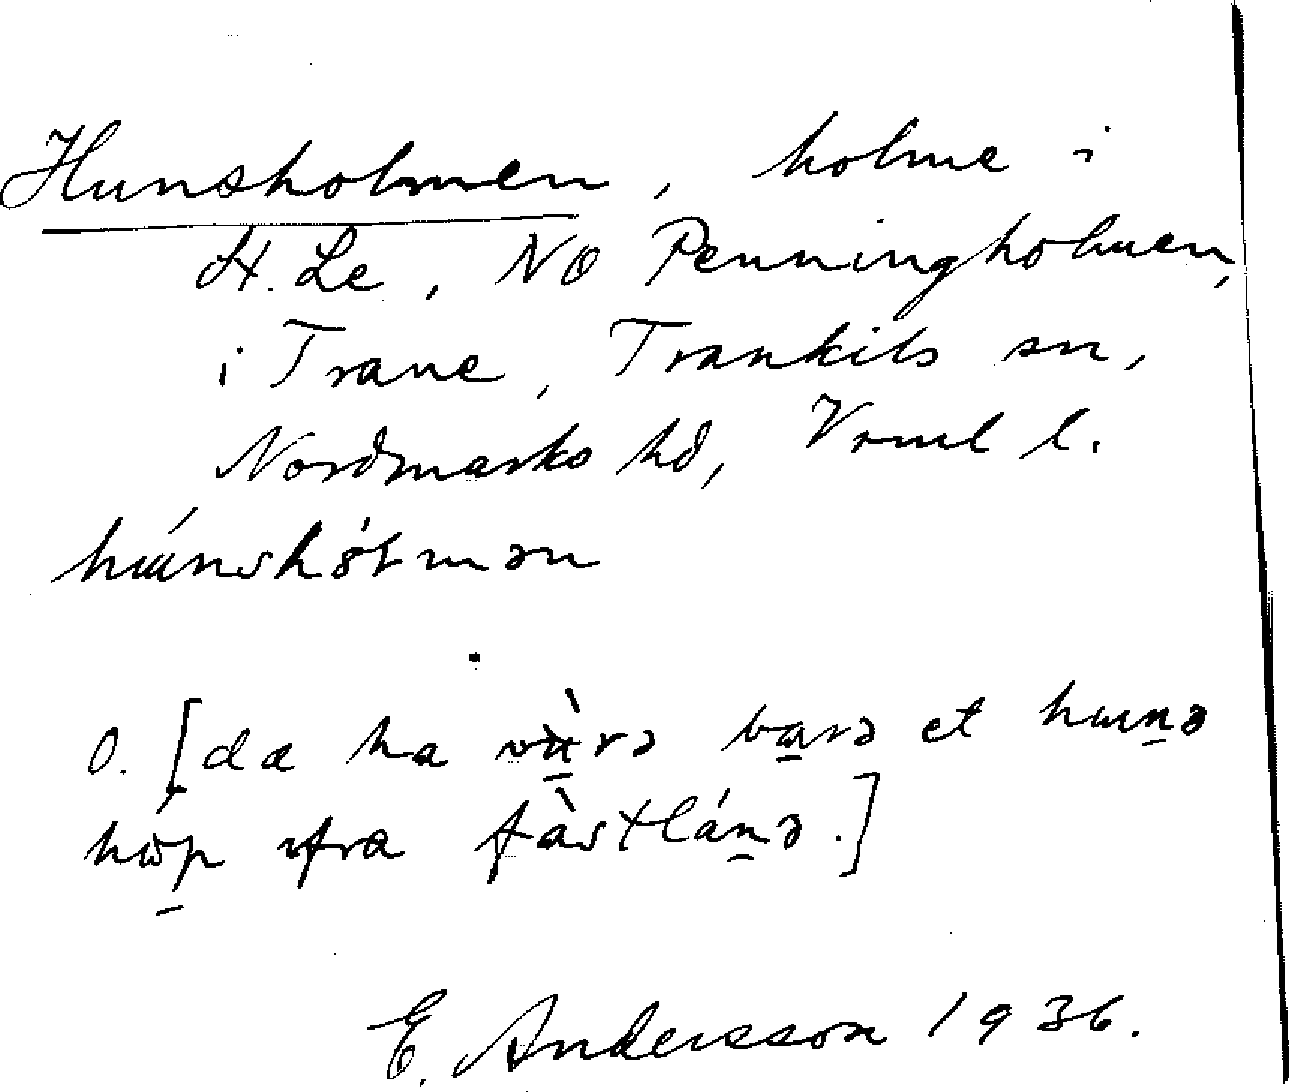 Hunsholmen, holme i
St. Le, NO Penningholmen,
i Trane, Trankils sn,
Nordmarks hd, Vrml l.
hɯ́nshóɫmən
O. [dæ ha və̀rə ba̱rə et hɯṉə
hòp ifra fàstláṉə.]
E. Andersson 1936.